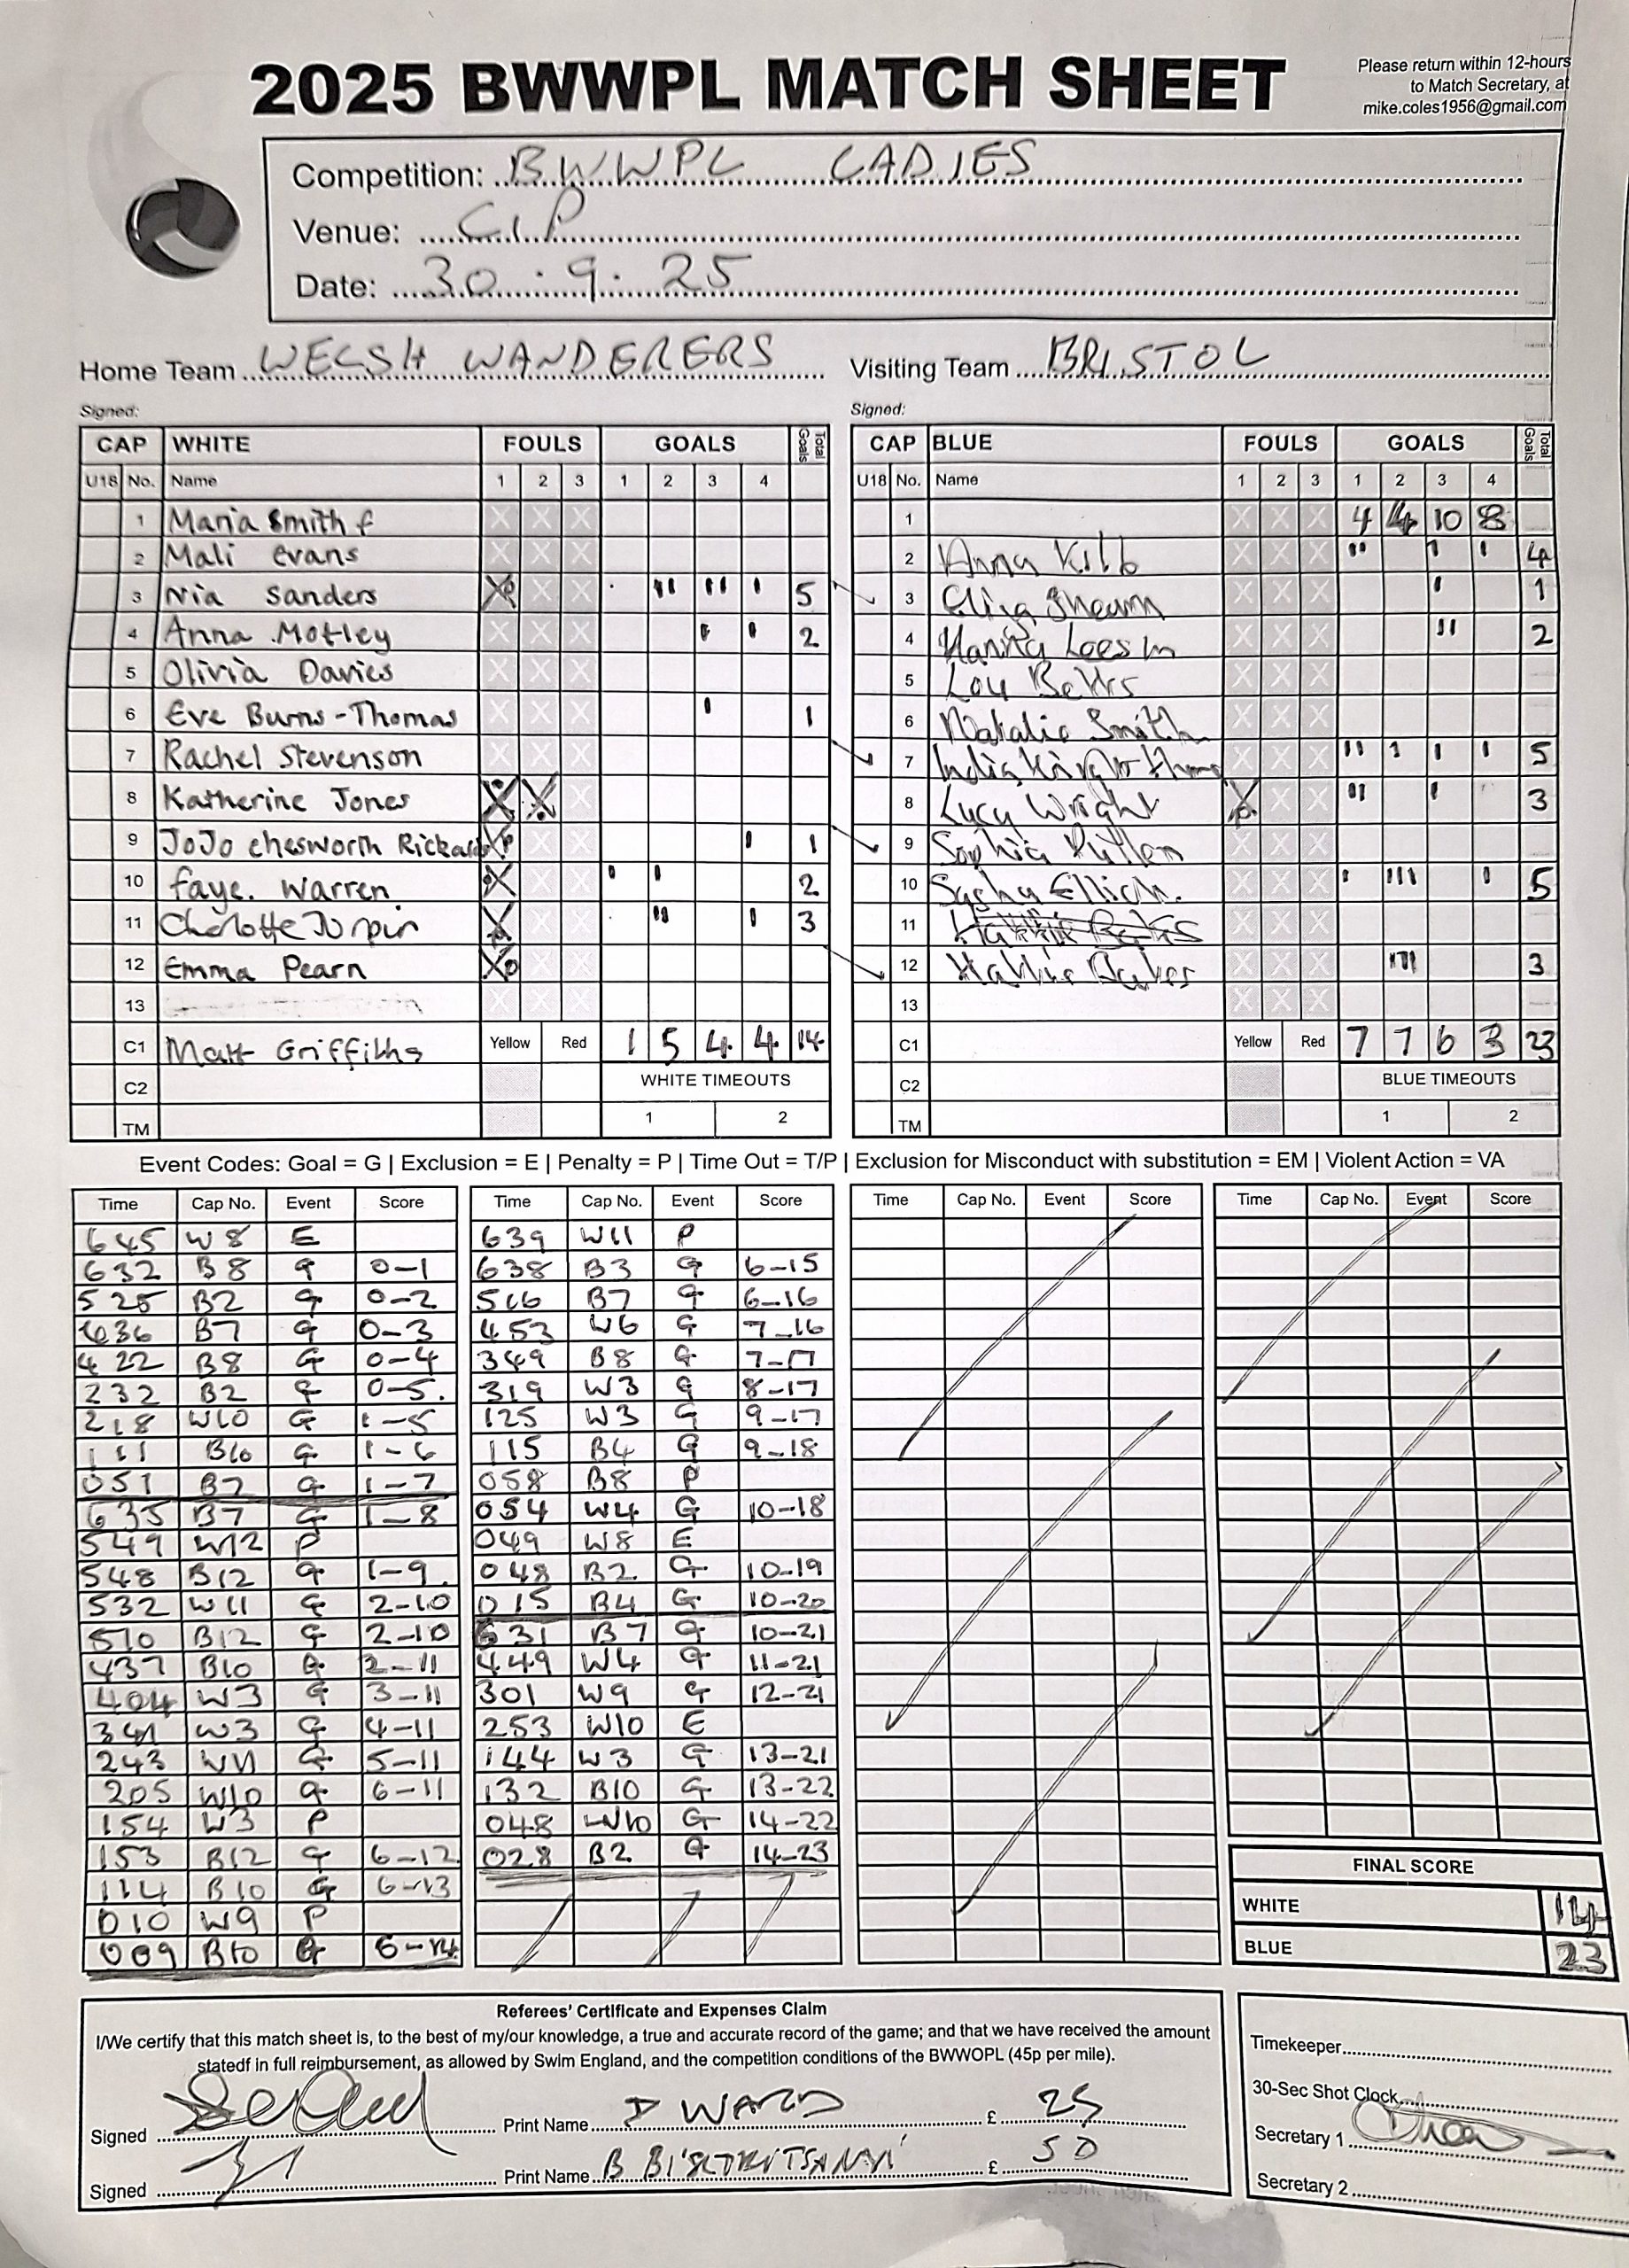 2025 BWWPL MATCH SHEET
Please return within 12-hours
to Match Secretary, at
mike.coles1956@gmail.com
Competition: BWWPL LADIES
Venue: C.I.P
Date: 30.9.25
Home Team WELSH WANDERERS
Visiting Team BRISTOL
Signed:
Signed:
CAP WHITE FOULS GOALS Total Goals
U18 No. Name 1 2 3 1 2 3 4
1 Maria Smith
2 Mali evans
3 Nia Sanders 5
4 Anna Motley 2
5 Olivia Davies
6 Eve Burns-Thomas 1
7 Rachel Stevenson
8 Katherine Jones
9 JoJo chesworth Rickards 1
10 faye. Warren. 2
11 Charlotte Turpin 3
12 Emma Pearn
13
C1 Matt Griffiths Yellow Red 1 5 4 4 14
C2 WHITE TIMEOUTS
TM 1 2
CAP BLUE FOULS GOALS Total Goals
U18 No. Name 1 2 3 1 2 3 4
1 4 4 10 8
2 Anna Kilb 4
3 Eliza 1
4 Lees 2
5 Lou
6 Natalie Smith
7 India Knight 5
8 Lucy Wright 3
9 Sophia Pullen
10 Sasha 5
11
12 Hattie 3
13
C1 Yellow Red 7 7 6 3 23
C2 BLUE TIMEOUTS
TM 1 2
Event Codes: Goal = G | Exclusion = E | Penalty = P | Time Out = T/P | Exclusion for Misconduct with substitution = EM | Violent Action = VA
Time Cap No. Event Score
645 W8 E
632 B8 G 0-1
525 B2 G 0-2
436 B7 G 0-3
422 B8 G 0-4
232 B2 G 0-5.
218 W10 G 1-5
111 B10 G 1-6
051 B7 G 1-7
635 B7 G 1-8
549 W12 P
548 B12 G 1-9.
532 W11 G 2-10
510 B12 G 2-10
437 B10 G 2-11
404 W3 G 3-11
341 W3 G 4-11
243 W11 G 5-11
205 W10 G 6-11
154 W3 P
153 B12 G 6-12
114 B10 G 6-13
010 W9 P
009 B10 G 6-14
Time Cap No. Event Score
639 W11 P
638 B3 G 6-15
516 B7 G 6-16
453 W6 G 7-16
349 B8 G 7-17
319 W3 G 8-17
125 W3 G 9-17
115 B4 G 9-18
058 B8 P
054 W4 G 10-18
049 W8 E
048 B2 G 10-19
015 B4 G 10-20
631 B7 G 10-21
449 W4 G 11-21
301 W9 G 12-21
253 W10 E
144 W3 G 13-21
132 B10 G 13-22
048 W10 G 14-22
028 B2 G 14-23
Time Cap No. Event Score
Time Cap No. Event Score
FINAL SCORE
WHITE 14
BLUE 23
Referees' Certificate and Expenses Claim
I/We certify that this match sheet is, to the best of my/our knowledge, a true and accurate record of the game; and that we have received the amount
statedf in full reimbursement, as allowed by Swim England, and the competition conditions of the BWWOPL (45p per mile).
Signed Print Name D WARD £ 25
Signed Print Name B £ 50
Timekeeper
30-Sec Shot Clock
Secretary 1
Secretary 2